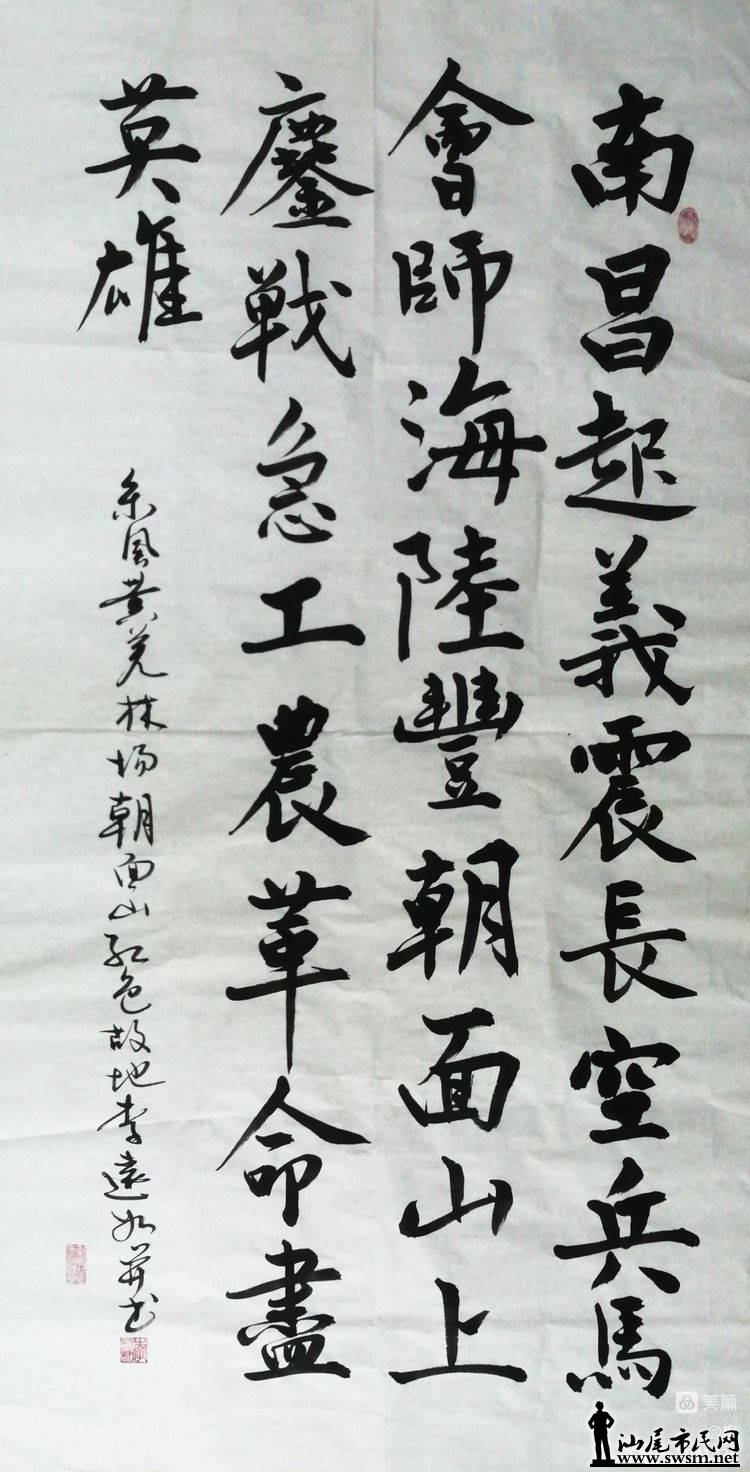 南昌起義震長空兵馬
會師海陸豐朝面山上
鏖戰急工農革命盡
英雄
東風黄羌林场朝面山红色故地李遠如并书
美篇
汕尾市民网
www.swsm.net